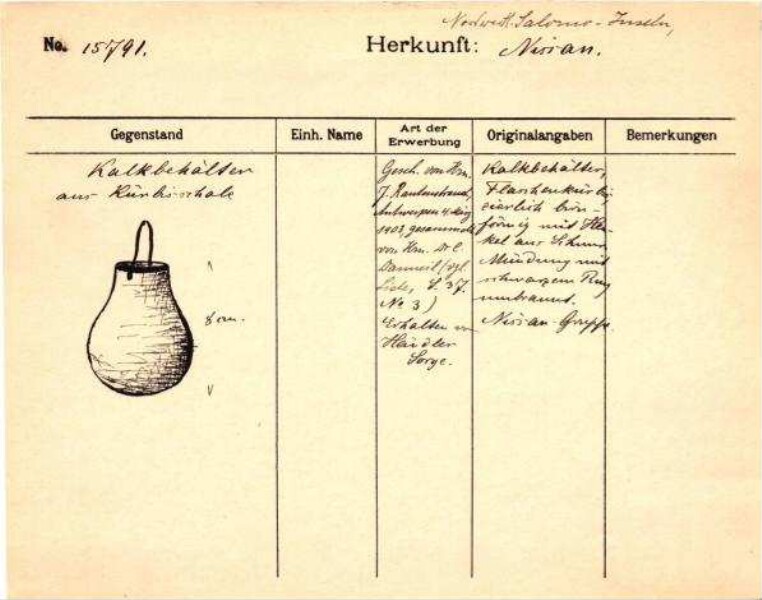 Nordwestl. Salomo-Inseln,
No. 15791. Herkunft: Nissan.
Gegenstand Einh. Name Art der Erwerbung Originalangaben Bemerkungen
Kalkbehälter
aus Kürbisschale
8 cm.
Gesch. von Hrn.
J. Rautenstrauch,
Antwerpen 4. März
1903, gesammelt
von Hrn. Dr. C.
Danneil (vgl.
Liste, S. 37.
No 3)
Erhalten von
Händler
Sorge.
Kalkbehälter,
Flaschenkürbis,
zierlich birn-
förmig mit Hen-
kel aus Schnur
Mündung mit
schwarzem Ring
umbrannt.
Nissan-Gruppe.